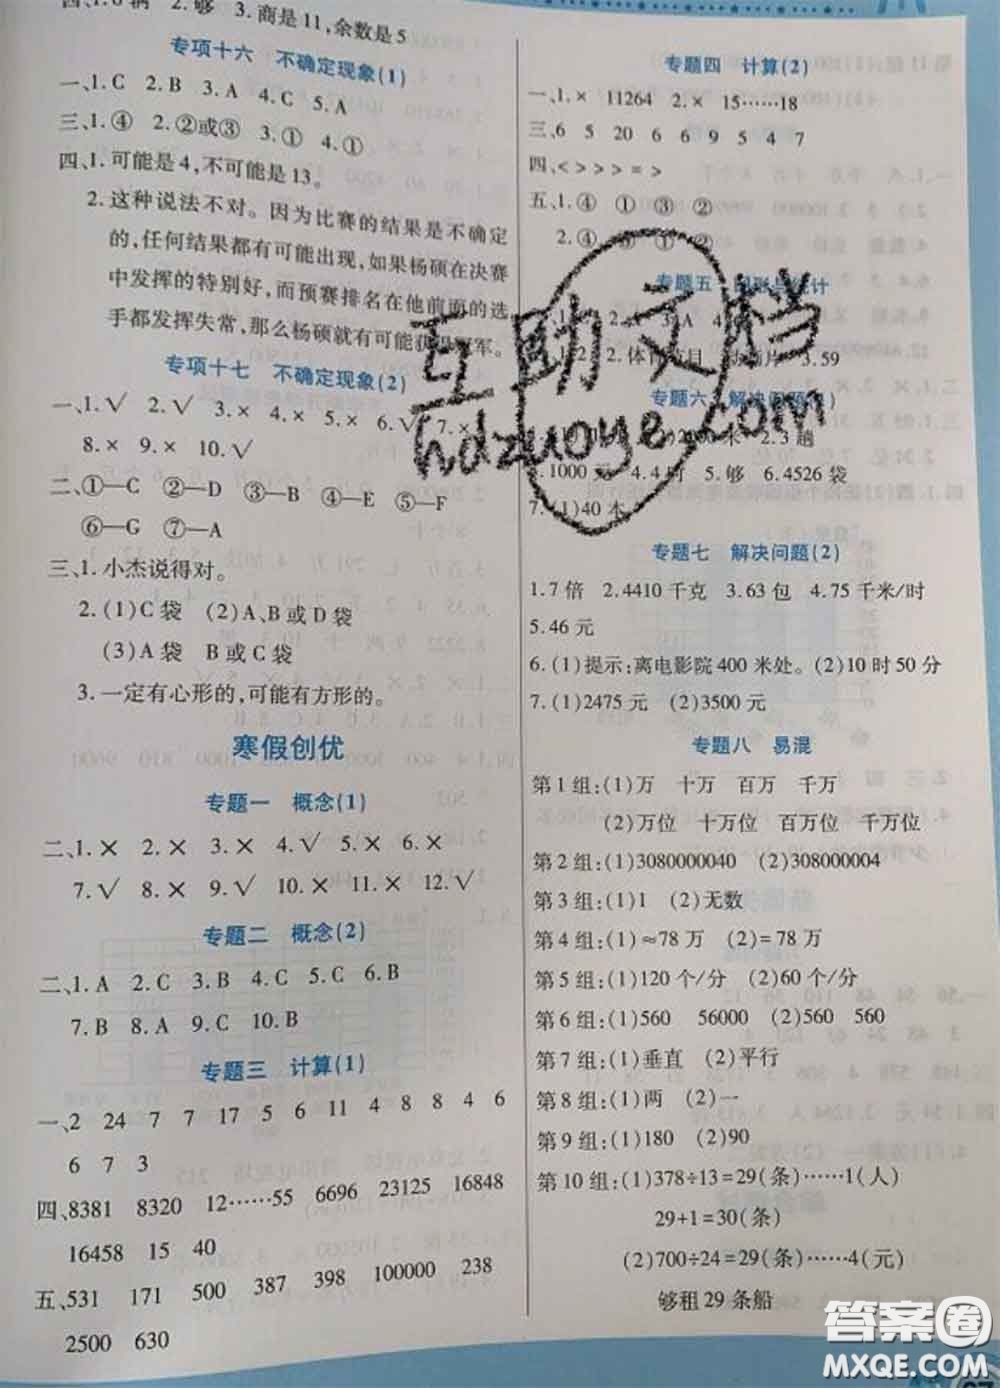 四、1.6 辆　2.够　3.商是11,余数是5
专项十六　不确定现象(1)
一、1.C　2.B　3.A　4.C　5.A
三、1.④　2.②或③　3.①　4.①
四、1.可能是4,不可能是13。
2.这种说法不对。因为比赛的结果是不确定
的,任何结果都有可能出现,如果杨硕在决赛
中发挥的特别好,而预赛排名在他前面的选
手都发挥失常,那么杨硕就有可能获得冠军。
专项十七　不确定现象(2)
一、1.√　2.√　3.×　4.×　5.×　6.√　7.×
8.×　9.×　10.√
二、①—C　②—D　③—B　④—E　⑤—F
⑥—G　⑦—A
三、1.小杰说得对。
2.(1)C袋　(2)A、B或D袋
(3)A袋　B或C袋
3.一定有心形的,可能有方形的。
寒假创优
专题一　概念(1)
二、1.×　2.×　3.×　4.√　5.×　6.×
7.√　8.×　9.√　10.×　11.×　12.√
专题二　概念(2)
二、1.A　2.C　3.B　4.C　5.C　6.B
7.B　8.A　9.C　10.B
专题三　计算(1)
一、2　24　7　7　17　5　6　11　4　8　8　4　6
6　7　3
四、8381　8320　12……55　6696　23125　16848
16458　15　40
五、531　171　500　387　398　100000　238
2500　630
专题四　计算(2)
一、1.×　11264　2.×　15……18
三、6　5　20　6　9　9　5　4　7
四、<　>　>　>　=　>
五、1.④　①　③　②
2.④　①　②
专题五　图形与统计
2.A　3.A　4
2.体育节目　动画片　3.59
专题六　解决问题(1)
2.3趟
3.1000元　4.4时　5.够　6.4526袋
7.(1)40本
专题七　解决问题(2)
1.7倍　2.4410千克　3.63包　4.75千米/时
5.46元
6.(1)提示:离电影院400米处。(2)10时50分
7.(1)2475元　(2)3500元
专题八　易混
第1组:(1)万　十万　百万　千万
(2)万位　十万位　百万位　千万位
第2组:(1)3080000040　(2)308000004
第3组:(1)1　(2)无数
第4组:(1)≈78万　(2)=78万
第5组:(1)120个/分　(2)60个/分
第6组:(1)560　56000　(2)560　560
第7组:(1)垂直　(2)平行
第8组:(1)两　(2)一
第9组:(1)180　(2)90
第10组:(1)378÷13=29(条)……1(人)
29+1=30(条)
(2)700÷24=29(条)……4(元)
够租29条船
互助文档
hdzuoye.com
答案圈
MXQE.COM